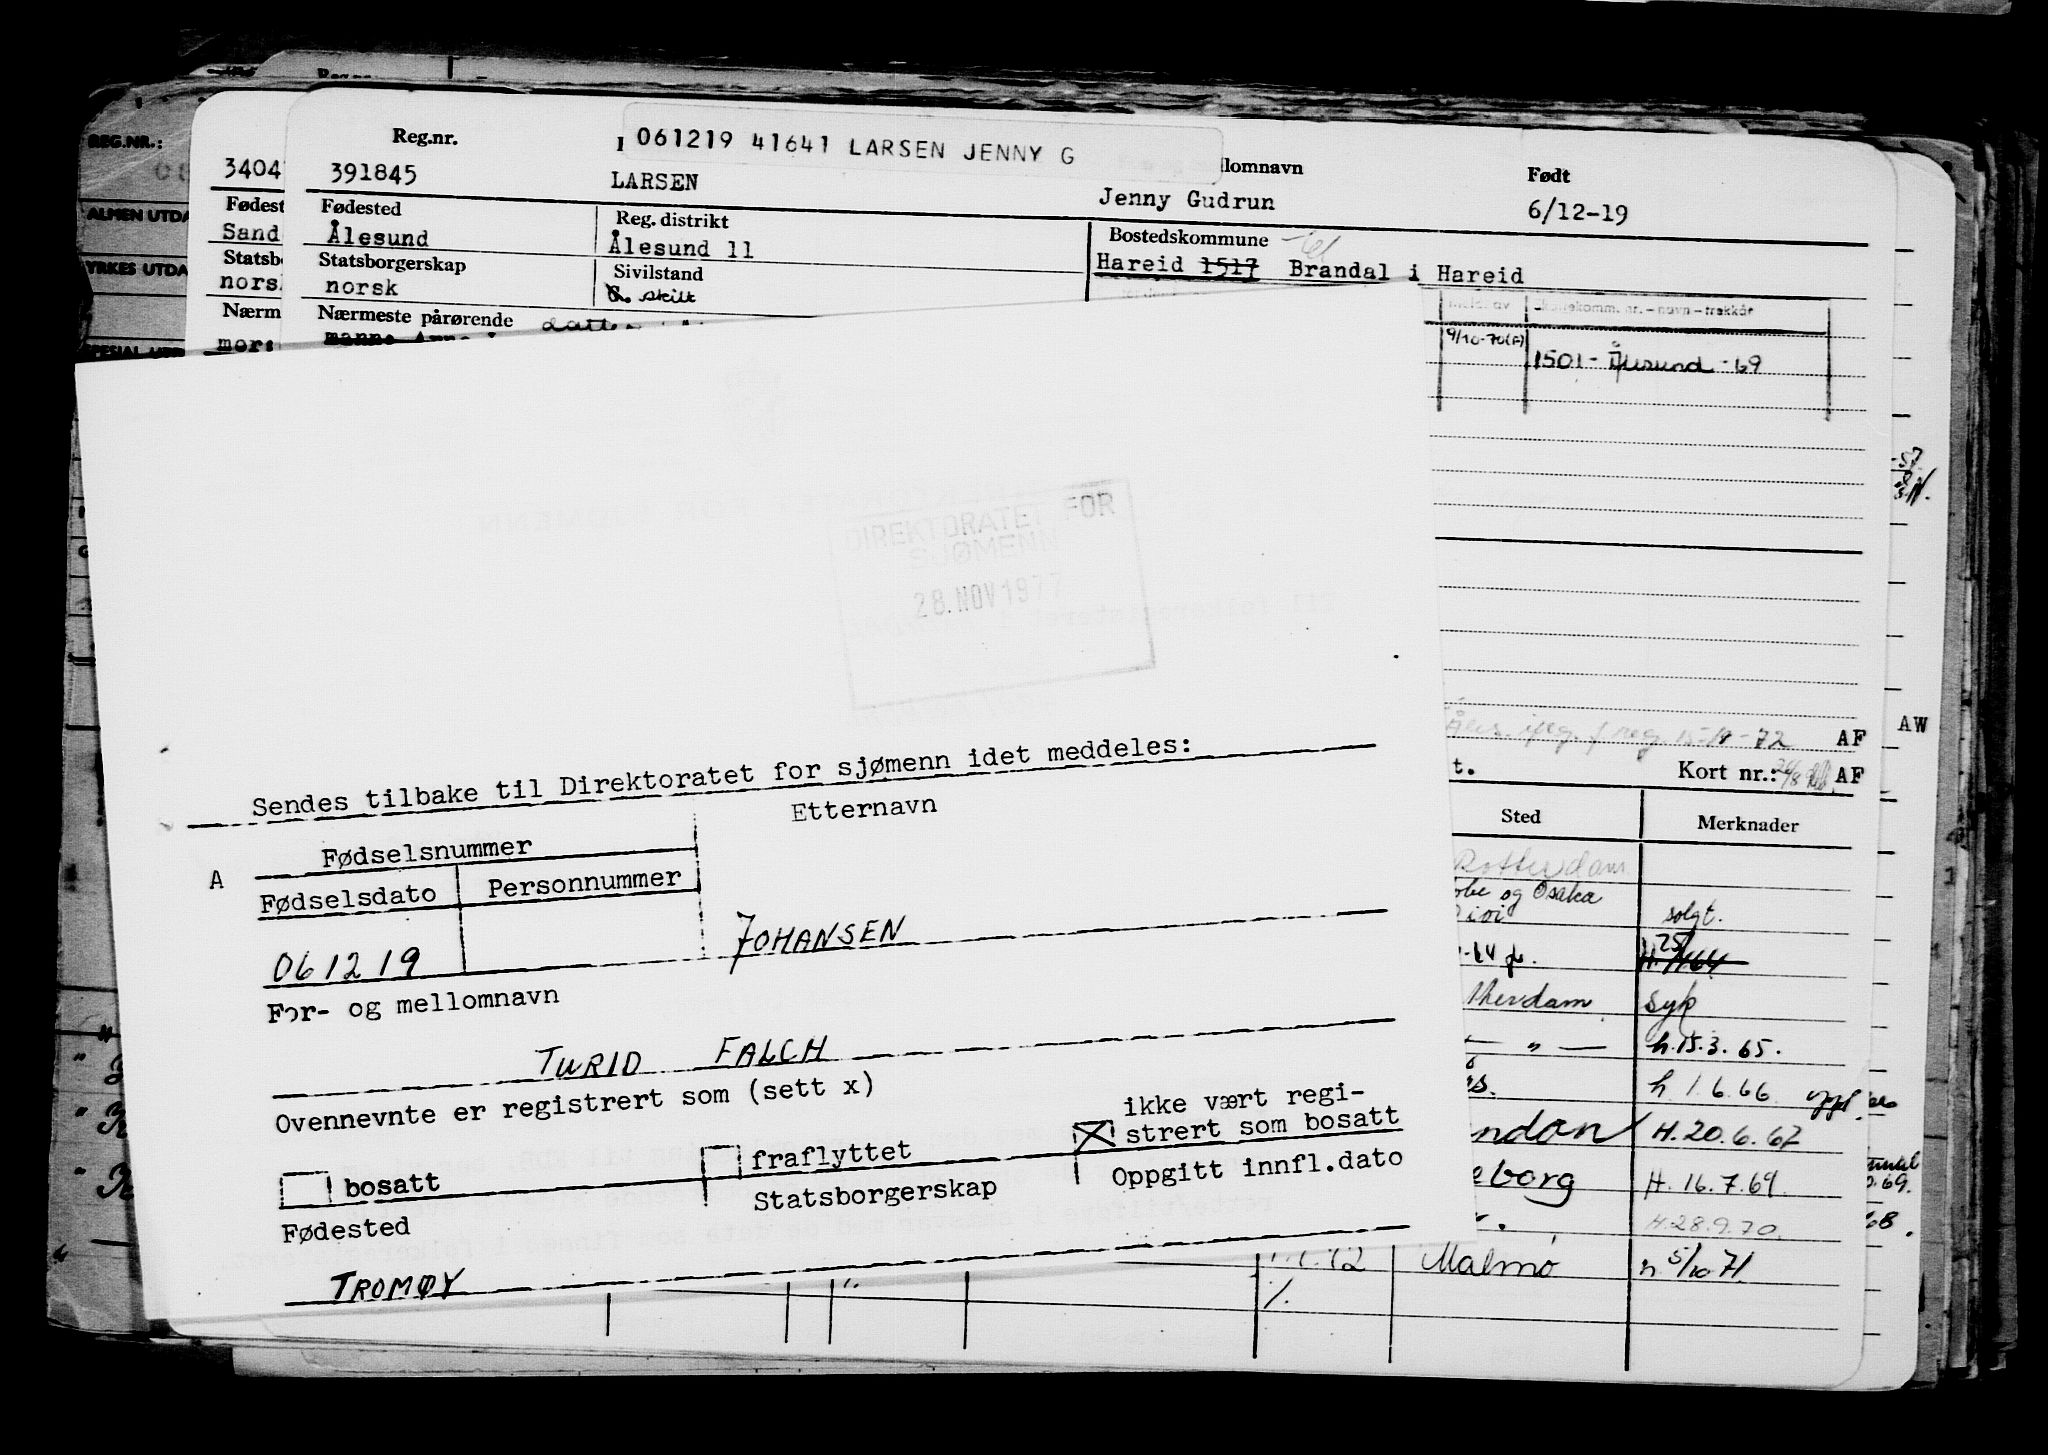 Reg.nr.
061219 41641 LARSEN JENNY G
lomnavn
Født
REG.NR.:
3404
391845
LARSEN
Jenny Gudrun
6/12-19
ALMEN UTDA
Fødest
Fødested
Reg. distrikt
Bostedskommune
Sand
Ålesund
Ålesund 11
Hareid 1517 Brandal i Hareid
YRKES UTDA
Statsb
Statsborgerskap
Sivilstand
nors
norsk
skilt
Nærm
Nærmeste pårørende
mors
9/10-70(A)
1501 - Ålesund - 69
DIREKTORATET FOR
SJØMENN
28. NOV 1977
AW
AF
t.
Kort nr.:
AF
Sted
Merknader
Rotterdam
obe og Osaka
solgt.
therdam
syk
— " —
h.15.3.65.
h 1.6.66.
ndon
H.20.6.67
eborg
H.16.7.69.
H.28.9.70.
Malmø
h 5/10 71.
Sendes tilbake til Direktoratet for sjømenn idet meddeles:
Fødselsnummer
Etternavn
A
Fødselsdato
Personnummer
061219
JOHANSEN
For- og mellomnavn
TURID FALCH
Ovennevnte er registrert som (sett x)
bosatt
fraflyttet
ikke vært regi-
strert som bosatt
Fødested
Statsborgerskap
Oppgitt innfl.dato
TROMØY